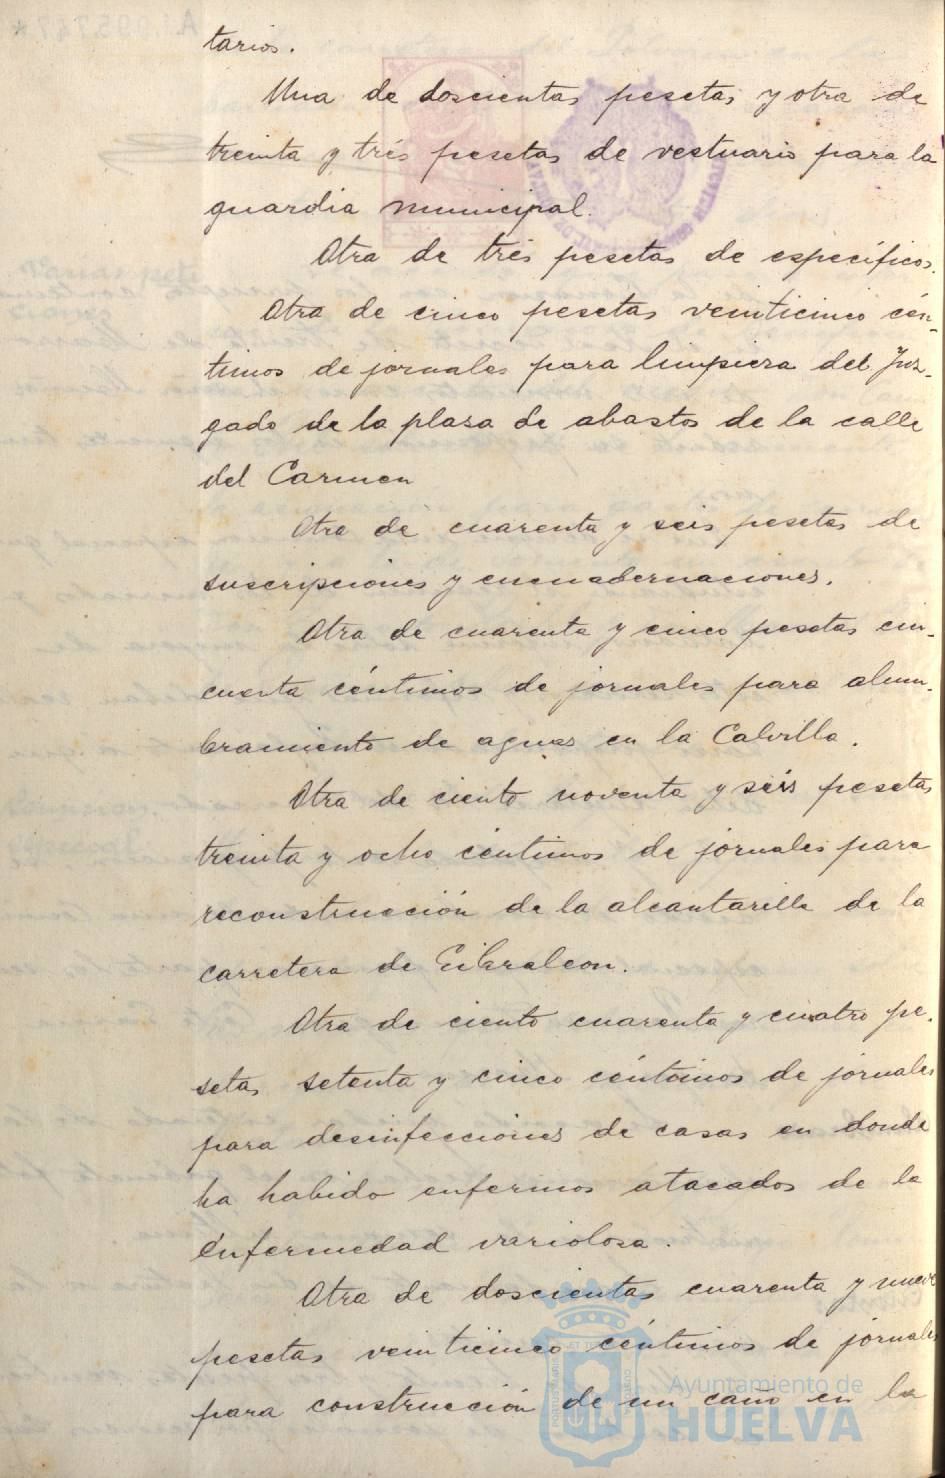 tarios.
Una de doscientas pesetas y otra de
treinta y trés pesetas de vestuario para la
guardia municipal.
Otra de trés pesetas de especificos.
Otra de cinco pesetas veinticinco cén-
timos de jornales para limpieza del Juz-
gado de la plaza de abastos de la calle
del Carmen
Otra de cuarenta y seis pesetas de
suscripciones y encuadernaciones.
Otra de cuarenta y cinco pesetas cin-
cuenta céntimos de jornales para alum-
bramiento de aguas en la Calvilla.
Otra de ciento noventa y seis pesetas
treinta y ocho céntimos de jornales para
reconstrucción de la alcantarilla de la
carretera de Gibraleon.
Otra de ciento cuarenta y cuatro pe-
setas setenta y cinco céntimos de jornales
para desinfecciones de casas en donde
ha habido enfermos atacados de la
enfermedad variolosa.
Otra de doscientas cuarenta y nueve
pesetas veinticinco céntimos de jornales
para construcción de un caño en la
Ayuntamiento de
HUELVA